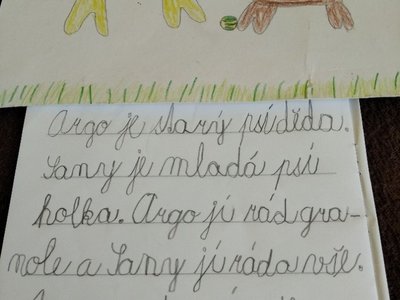 Argo je starý psí děda.
Sany je mladá psí
holka. Argo jí rád gra-
nole a Sany jí ráda vše.